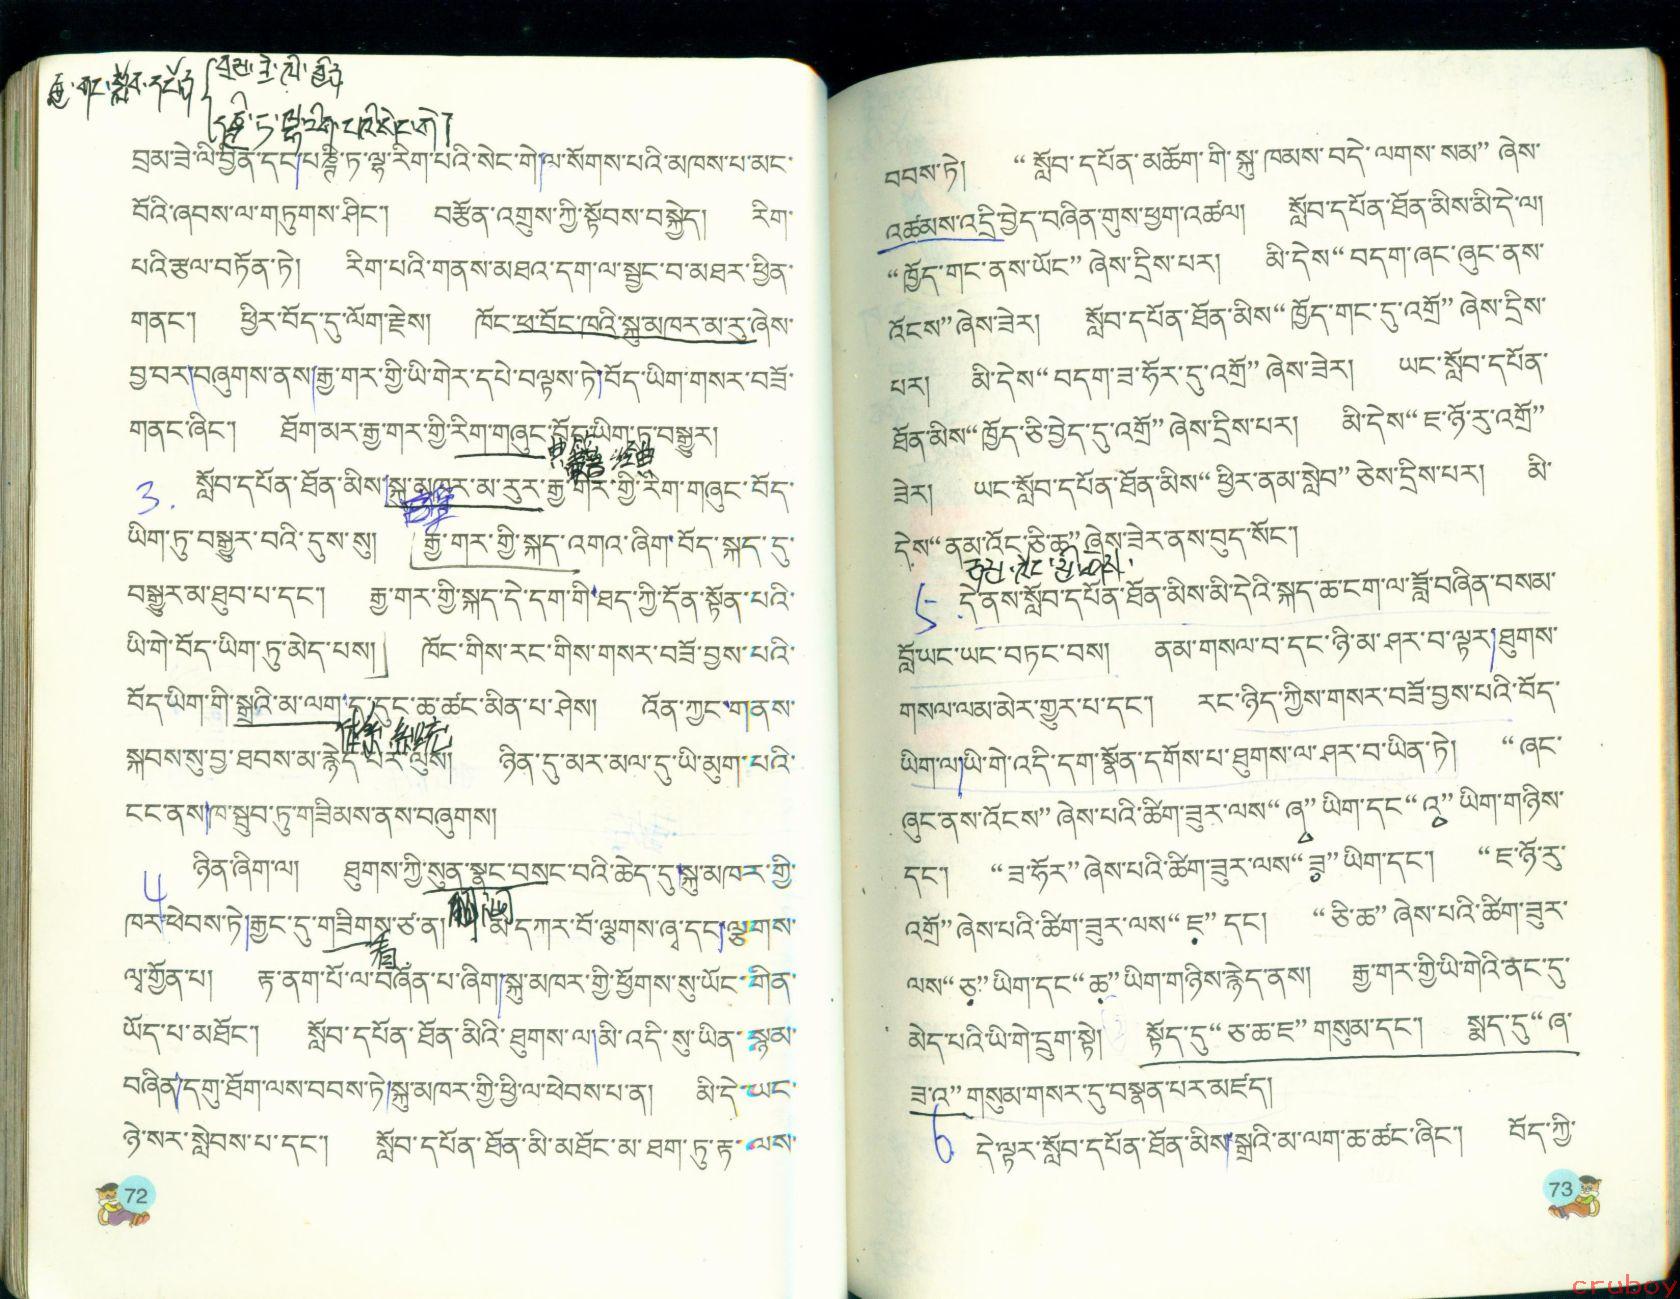 རྒྱ་གར་སློབ་དཔོན
བྲམ་ཟེ་ལི་བྱིན
པཎྜི་ཏ་ལྷ་རིག་པའི་སེང་གེ།
བྲམ་ཟེ་ལི་བྱིན་དང་པཎྜི་ཏ་ལྷ་རིག་པའི་སེང་གེ་ལ་སོགས་པའི་མཁས་པ་མང་
པོའི་ཞབས་ལ་གཏུགས་ཤིང་། བརྩོན་འགྲུས་ཀྱི་སྟོབས་བསྐྱེད། རིག་
པའི་རྩལ་བཏོན་ཏེ། རིག་པའི་གནས་མཐའ་དག་ལ་སྦྱང་བ་མཐར་ཕྱིན་
གནང་། ཕྱིར་བོད་དུ་ལོག་རྗེས། ཁོང་ཕ་བོང་ཁའི་སྐུ་མཁར་མ་རུ་ཞེས་
བྱ་བར་བཞུགས་ནས་རྒྱ་གར་གྱི་ཡི་གེར་དཔེ་བལྟས་ཏེ་བོད་ཡིག་གསར་བཟོ་
གནང་ཞིང་། ཐོག་མར་རྒྱ་གར་གྱི་རིག་གཞུང་བོད་ཡིག་ཏུ་བསྒྱུར།
3. སློབ་དཔོན་ཐོན་མིས་སྐུ་མཁར་མ་རུར་རྒྱ་གར་གྱི་རིག་གཞུང་བོད་
ཡིག་ཏུ་བསྒྱུར་བའི་དུས་སུ། རྒྱ་གར་གྱི་སྐད་འགའ་ཞིག་བོད་སྐད་དུ་
བསྒྱུར་མ་ཐུབ་པ་དང་། རྒྱ་གར་གྱི་སྐད་དེ་དག་གི་ཐད་ཀྱི་དོན་སྟོན་པའི་
ཡི་གེ་བོད་ཡིག་ཏུ་མེད་པས། ཁོང་གིས་རང་གིས་གསར་བཟོ་བྱས་པའི་
བོད་ཡིག་གི་སྒྲའི་མ་ལག་ད་དུང་ཆ་ཚང་མིན་པ་ཤེས། འོན་ཀྱང་གནས་
སྐབས་སུ་བྱ་ཐབས་མ་རྙེད་པར་ལུས། ཉིན་དུ་མར་མལ་དུ་ཡི་མུག་པའི་
ངང་ནས་ཁ་སྦུབ་ཏུ་གཟིམས་ནས་བཞུགས།
4 ཉིན་ཞིག་ལ། ཐུགས་ཀྱི་སུན་སྣང་བསང་བའི་ཆེད་དུ་སྐུ་མཁར་གྱི་
ཁར་ཕེབས་ཏེ་རྒྱང་དུ་གཟིགས་ཙ་ན། མི་དཀར་པོ་ལྕགས་ཞྭ་དང་ལྕགས་
ལྭ་གྱོན་པ། རྟ་ནག་པོ་ལ་བཞོན་པ་ཞིག་སྐུ་མཁར་གྱི་ཕྱོགས་སུ་ཡོང་གིན་
ཡོད་པ་མཐོང་། སློབ་དཔོན་ཐོན་མིའི་ཐུགས་ལ་མི་འདི་སུ་ཡིན་སྙམ་
བཞིན་དགུ་ཐོག་ལས་བབས་ཏེ་སྐུ་མཁར་གྱི་ཕྱི་ལ་ཕེབས་པ་ན། མི་དེ་ཡང་
ཉེ་སར་སླེབས་པ་དང་། སློབ་དཔོན་ཐོན་མི་མཐོང་མ་ཐག་ཏུ་རྟ་ལས་
72
བབས་ཏེ། “སློབ་དཔོན་མཆོག་གི་སྐུ་ཁམས་བདེ་ལགས་སམ” ཞེས་
འཚམས་འདྲི་བྱེད་བཞིན་གུས་ཕྱག་འཚལ། སློབ་དཔོན་ཐོན་མིས་མི་དེ་ལ།
“ཁྱོད་གང་ནས་ཡོང” ཞེས་དྲིས་པར། མི་དེས“བདག་ཞང་ཞུང་ནས་
འོངས”ཞེས་ཟེར། སློབ་དཔོན་ཐོན་མིས“ཁྱོད་གང་དུ་འགྲོ” ཞེས་དྲིས་
པར། མི་དེས“བདག་ཟ་ཧོར་དུ་འགྲོ” ཞེས་ཟེར། ཡང་སློབ་དཔོན་
ཐོན་མིས“ཁྱོད་ཅི་བྱེད་དུ་འགྲོ” ཞེས་དྲིས་པར། མི་དེས“ཇ་ཉོ་རུ་འགྲོ”
ཟེར། ཡང་སློབ་དཔོན་ཐོན་མིས“ཕྱིར་ནམ་སླེབ” ཅེས་དྲིས་པར། མི་
དེས“ནམ་འོང་ཅི་ཆ”ཞེས་ཟེར་ནས་བུད་སོང་།
5 དེ་ནས་སློབ་དཔོན་ཐོན་མིས་མི་དེའི་སྐད་ཆ་ངག་ལ་ཟློ་བཞིན་བསམ་
བློ་ཡང་ཡང་བཏང་བས། ནམ་གསལ་བ་དང་ཉི་མ་ཤར་བ་ལྟར་ཐུགས་
གསལ་ལམ་མེར་གྱུར་པ་དང་། རང་ཉིད་ཀྱིས་གསར་བཟོ་བྱས་པའི་བོད་
ཡིག་ལ་ཡི་གེ་འདི་དག་སྣོན་དགོས་པ་ཐུགས་ལ་ཤར་བ་ཡིན་ཏེ། “ཞང་
ཞུང་ནས་འོངས” ཞེས་པའི་ཚིག་ཟུར་ལས“ཞ” ཡིག་དང“འ” ཡིག་གཉིས་
དང་། “ཟ་ཧོར” ཞེས་པའི་ཚིག་ཟུར་ལས“ཟ” ཡིག་དང་། “ཇ་ཉོ་རུ་
འགྲོ” ཞེས་པའི་ཚིག་ཟུར་ལས“ཇ” དང། “ཅི་ཆ” ཞེས་པའི་ཚིག་ཟུར་
ལས“ཅ” ཡིག་དང“ཆ” ཡིག་གཉིས་རྙེད་ནས། རྒྱ་གར་གྱི་ཡི་གེའི་ནང་དུ་
མེད་པའི་ཡི་གེ་དྲུག་སྟེ། སྟོད་དུ“ཅ་ཆ་ཇ” གསུམ་དང་། སྨད་དུ“ཞ་
ཟ་འ” གསུམ་གསར་དུ་བསྣན་པར་མཛད།
6 དེ་ལྟར་སློབ་དཔོན་ཐོན་མིས་སྒྲའི་མ་ལག་ཆ་ཚང་ཞིང་། བོད་ཀྱི་
73
cruboy